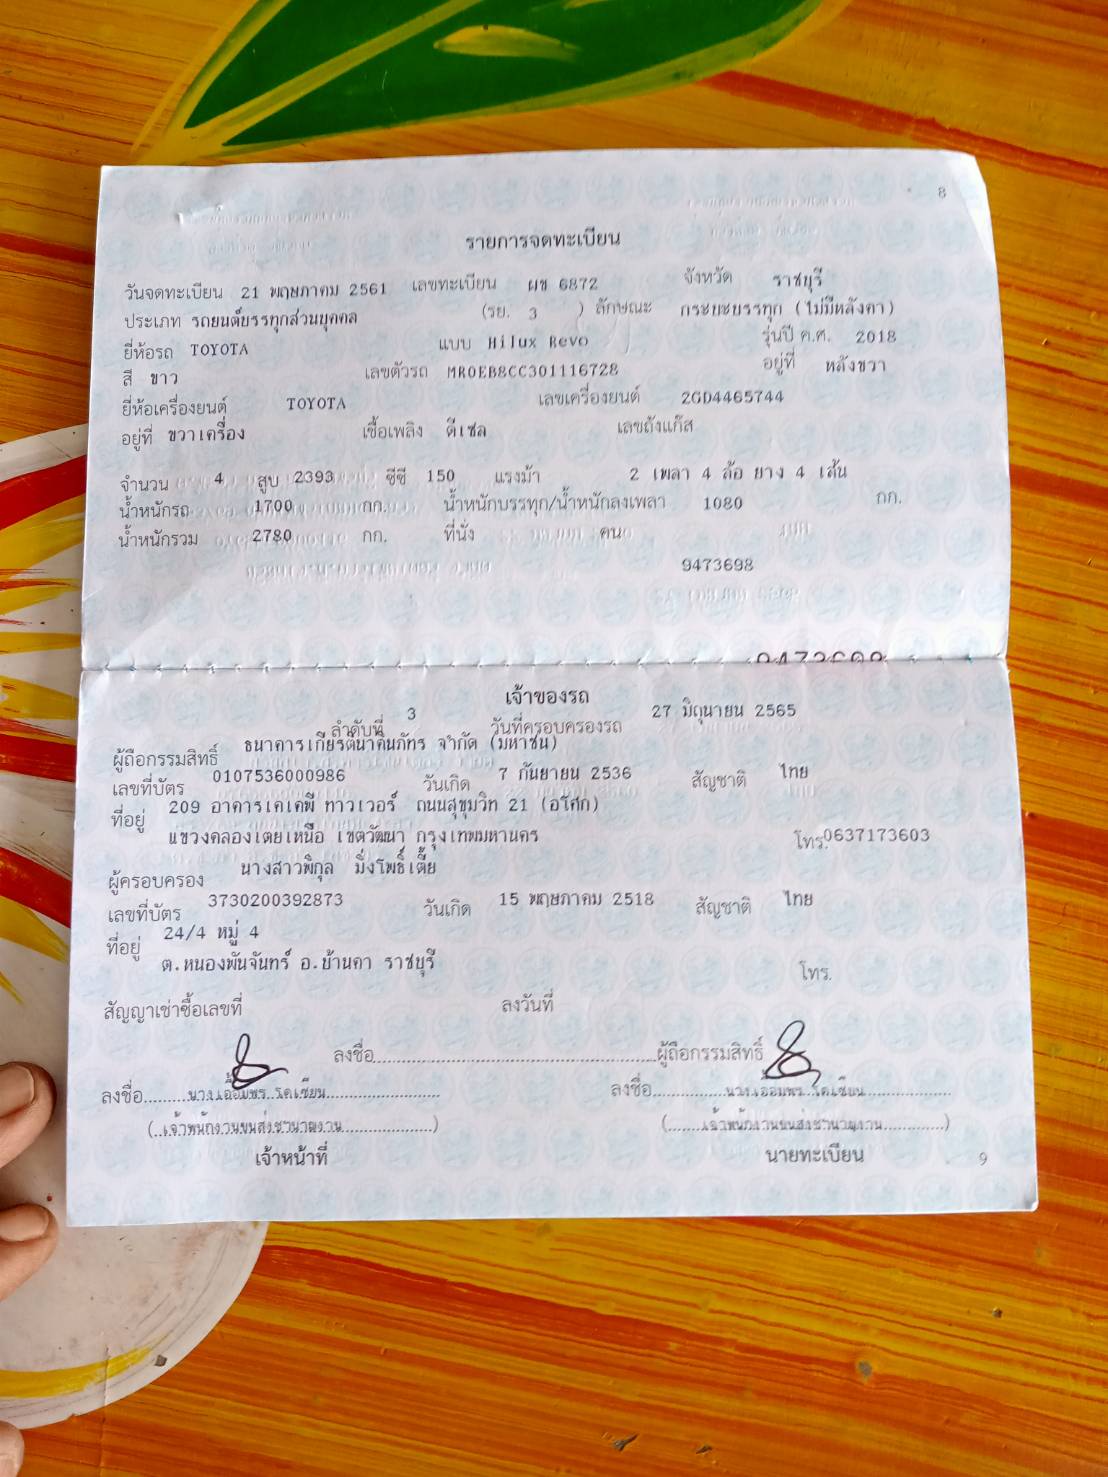 8
รายการจดทะเบียน
วันจดทะเบียน 21 พฤษภาคม 2561 เลขทะเบียน ผข 6872 จังหวัด ราชบุรี
ประเภท รถยนต์บรรทุกส่วนบุคคล (รย. 3 ) ลักษณะ กระบะบรรทุก (ไม่มีหลังคา)
ยี่ห้อรถ TOYOTA แบบ Hilux Revo รุ่นปี ค.ศ. 2018
สี ขาว เลขตัวรถ MR0EB8CC301116728 อยู่ที่ หลังขวา
ยี่ห้อเครื่องยนต์ TOYOTA เลขเครื่องยนต์ 2GD4465744
อยู่ที่ ขวาเครื่อง เชื้อเพลิง ดีเซล เลขถังแก๊ส
จำนวน 4 สูบ 2393 ซีซี 150 แรงม้า 2 เพลา 4 ล้อ ยาง 4 เส้น
น้ำหนักรถ 1700 กก. น้ำหนักบรรทุก/น้ำหนักลงเพลา 1080 กก.
น้ำหนักรวม 2780 กก. ที่นั่ง คน
9473698
เจ้าของรถ
ลำดับที่ 3 วันที่ครอบครองรถ 27 มิถุนายน 2565
ผู้ถือกรรมสิทธิ์ ธนาคารเกียรตินาคินภัทร จำกัด (มหาชน)
เลขที่บัตร 0107536000986 วันเกิด 7 กันยายน 2536 สัญชาติ ไทย
ที่อยู่ 209 อาคารเคเคพี ทาวเวอร์ ถนนสุขุมวิท 21 (อโศก)
แขวงคลองเตยเหนือ เขตวัฒนา กรุงเทพมหานคร โทร. 0637173603
ผู้ครอบครอง นางสาวพิกุล มิ่งโพธิ์เตี้ย
เลขที่บัตร 3730200392873 วันเกิด 15 พฤษภาคม 2518 สัญชาติ ไทย
ที่อยู่ 24/4 หมู่ 4
ต.หนองพันจันทร์ อ.บ้านคา ราชบุรี โทร.
สัญญาเช่าซื้อเลขที่ ลงวันที่
ลงชื่อ ผู้ถือกรรมสิทธิ์
ลงชื่อ นางเอื้อมพร โตเซียน ลงชื่อ นางเอื้อมพร โตเซียน
(เจ้าพนักงานขนส่งชำนาญงาน) (เจ้าพนักงานขนส่งชำนาญงาน)
เจ้าหน้าที่ นายทะเบียน 9